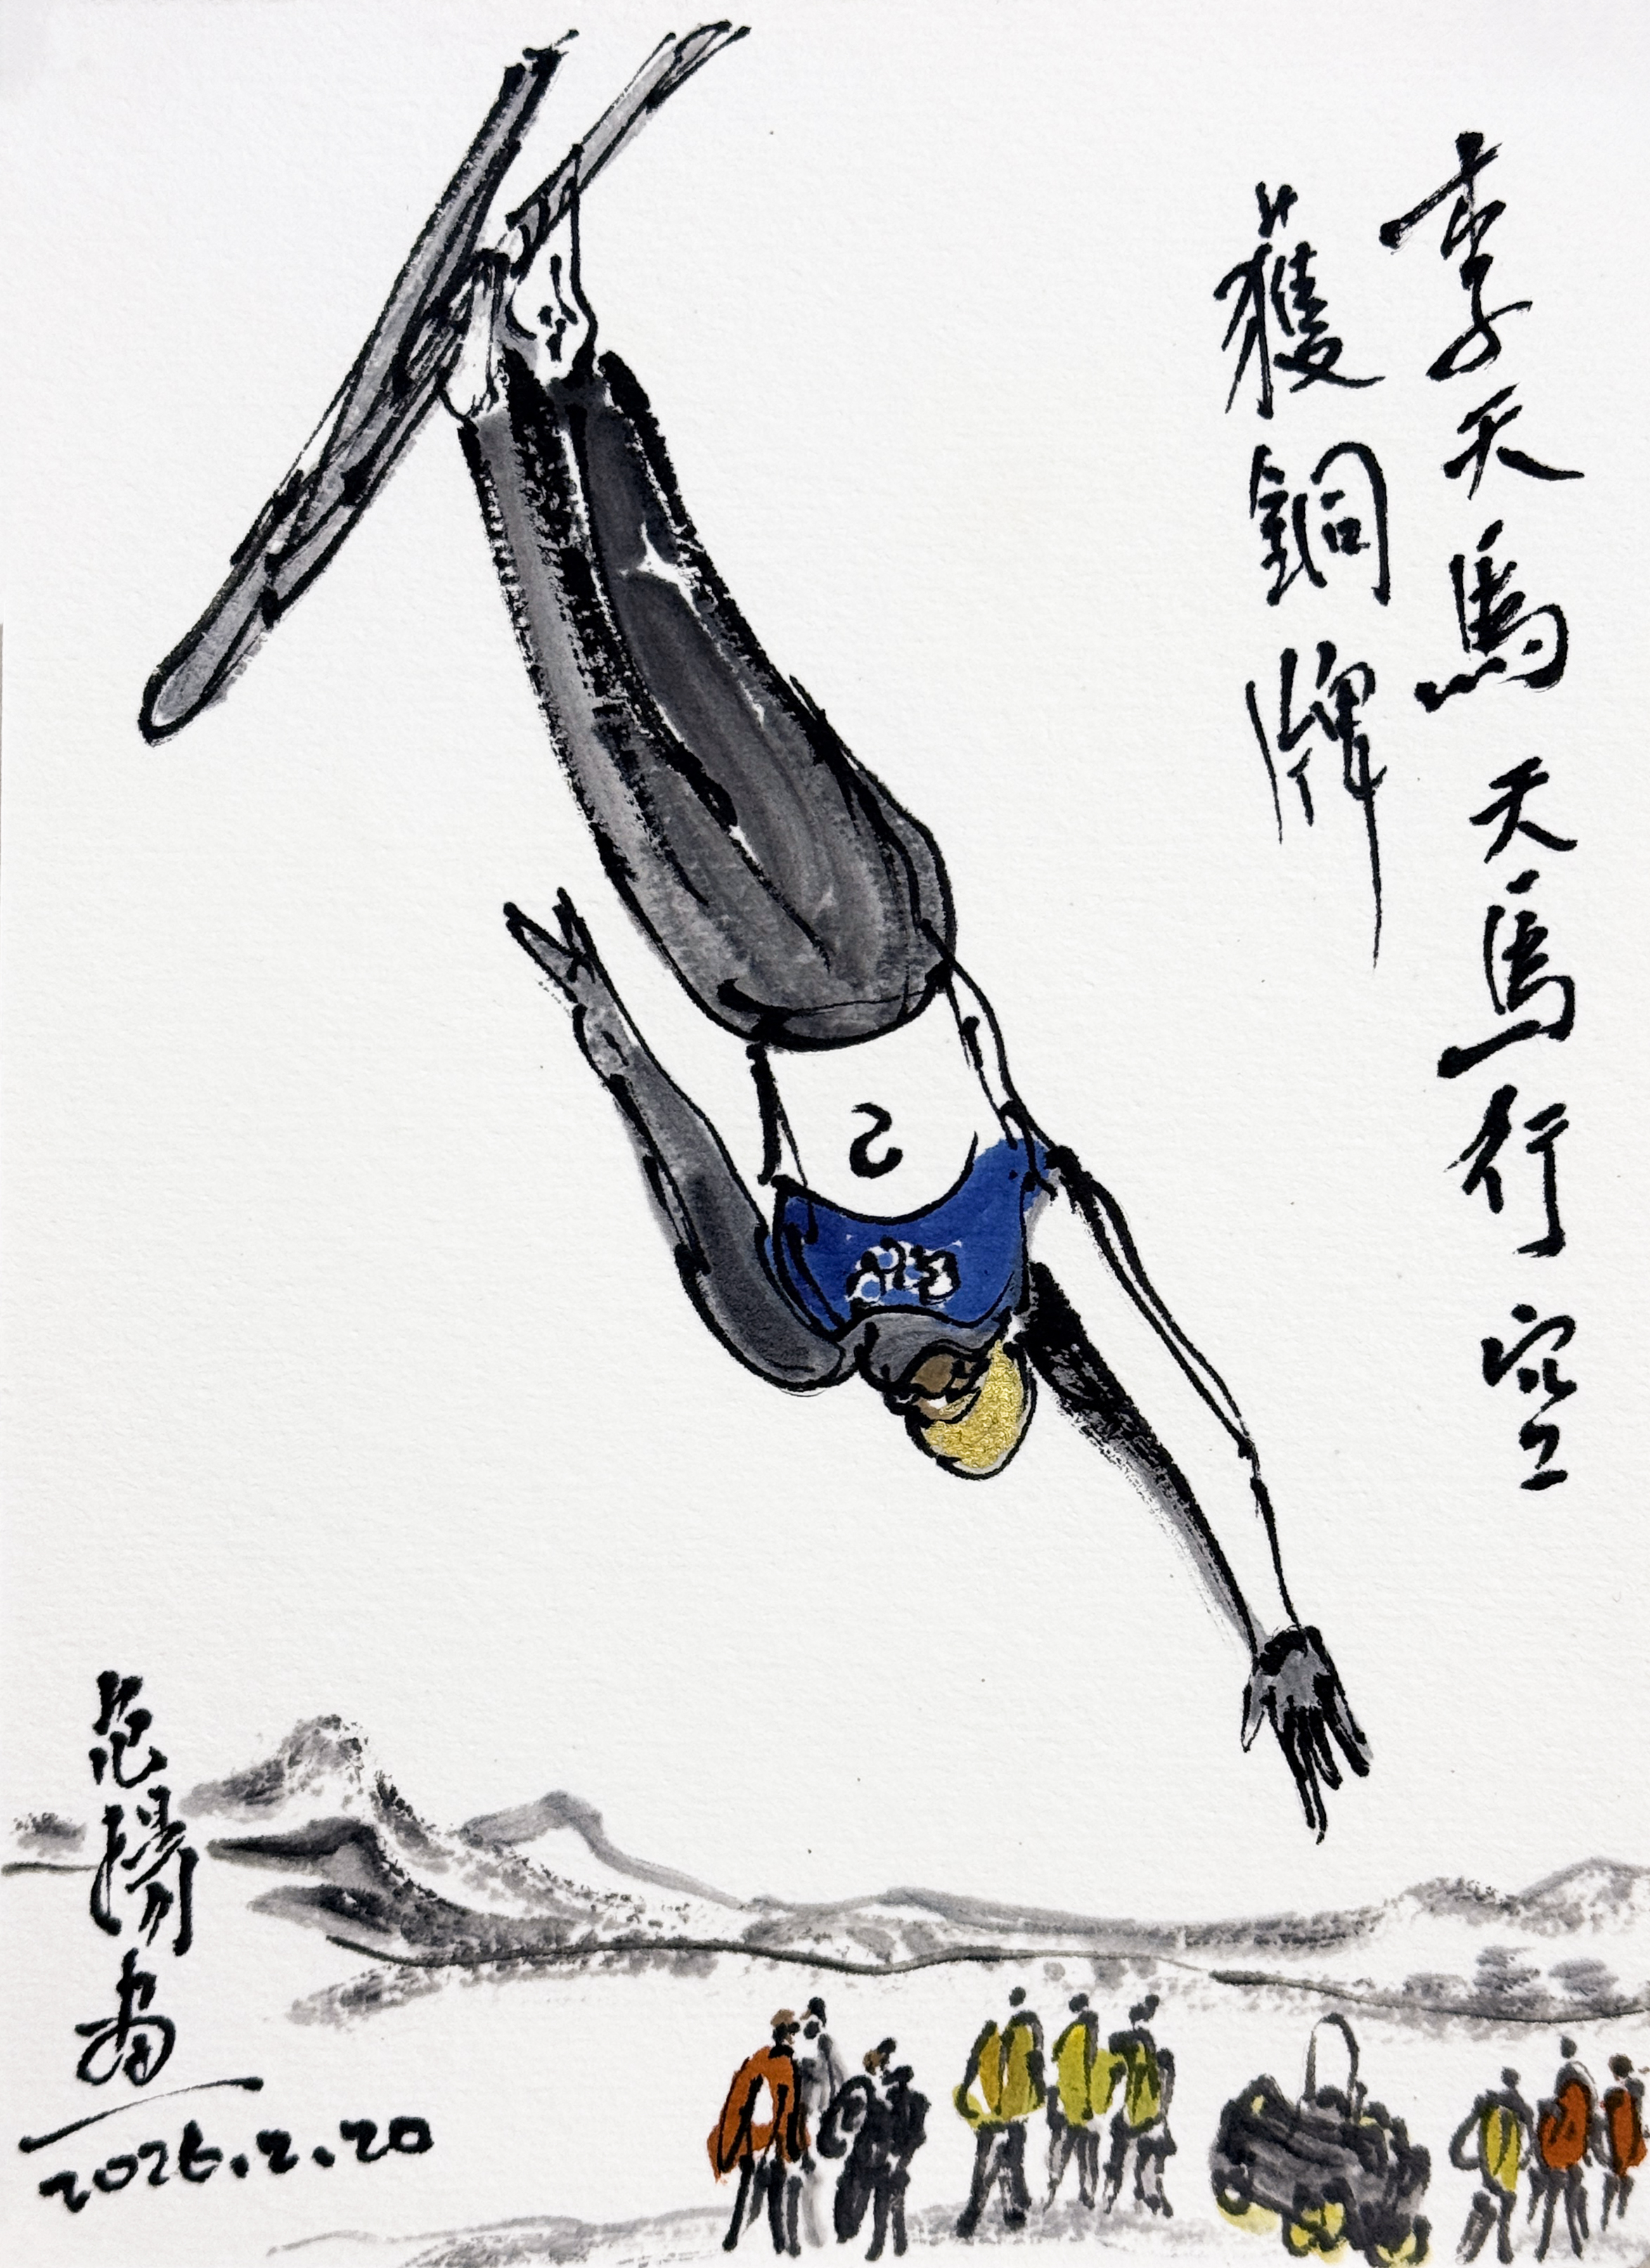 李天馬天馬行空
獲銅牌
2
范揚畫
2026.2.20